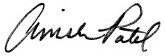 Anish Patel